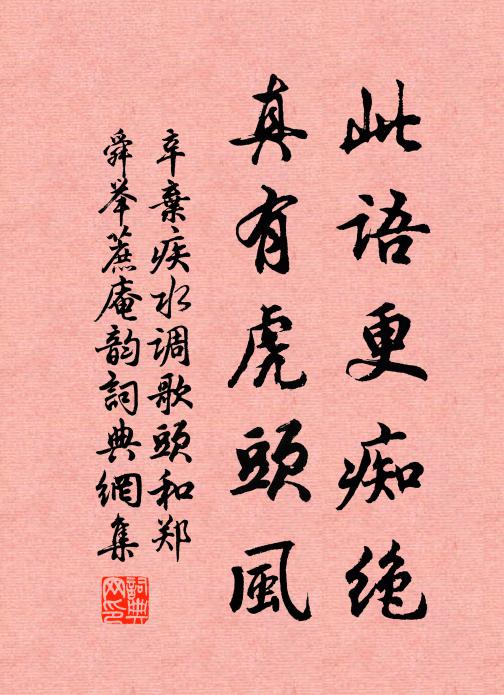 此語更痴絶
真有虎頭風
辛棄疾水调歌頭和郑
舜举蔗庵韵詞典網集
詞典網印